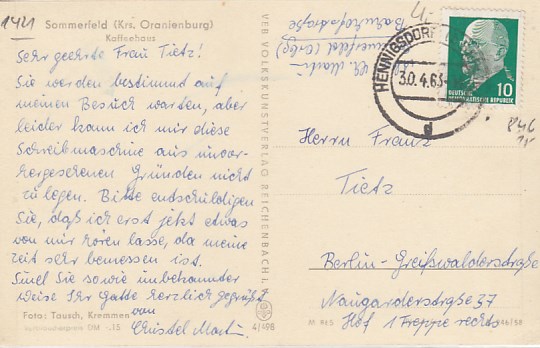 1421
Sommerfeld (Krs. Oranienburg)
Kaffeehaus
Sehr geehrte Frau Tietz!
Sie werden bestimmt auf
meinen Besuch warten, aber
leider kann ich mir diese
Schreibmaschine aus unvor-
hergesehenen Gründen nicht
zulegen. Bitte entschuldigen
Sie, daß ich erst jetzt etwas
von mir hören lasse, da meine
Zeit sehr bemessen ist.
Sind Sie sowie unbekannter
Weise Ihr Gatte herzlich gegrüßt
von
Christel Martin
Foto: Tausch, Kremmen
Verbraucherpreis DM -.15
4/498
VEB VOLKSKUNSTVERLAG REICHENBACH i. V.
Ch. Martin
Sommerfeld
Bahnhofstraße
4,-
HENNIGSDORF
30.4.63
d
10
DEUTSCHE
DEMOKRATISCHE REPUBLIK
846
Herrn Franz
Tietz
Berlin-Greifswalderstraße
Naugarderstraße 37
Hof 1 Treppe rechts